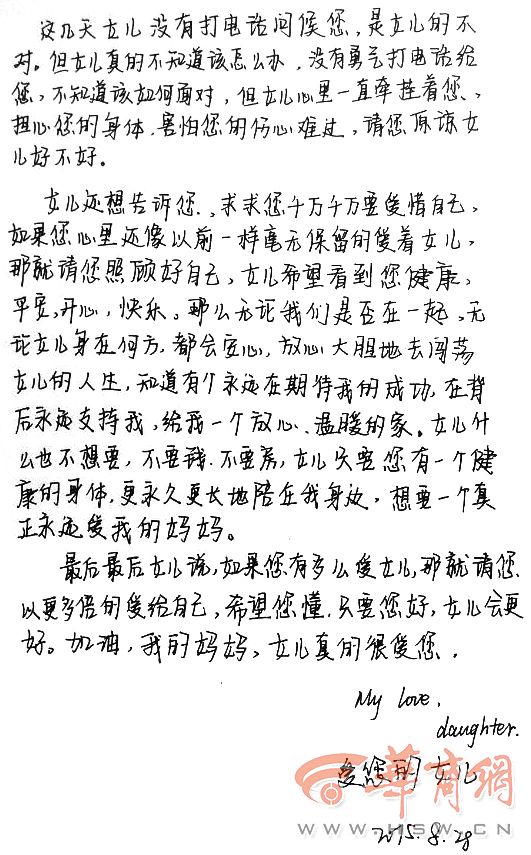 这几天女儿没有打电话问候您,是女儿的不
对。但女儿真的不知道该怎么办,没有勇气打电话给
您,不知道该如何面对,但女儿心里一直牵挂着您、
担心您的身体,害怕您的伤心难过,请您原谅女
儿好不好。
女儿还想告诉您,求求您千万千万要爱惜自己,
如果您心里还像以前一样毫无保留的爱着女儿,
那就请您照顾好自己,女儿希望看到您健康,
平安,开心,快乐。那么无论我们是否在一起,无
论女儿身在何方,都会安心,放心大胆地去闯荡
女儿的人生,知道有个永远在期待我的成功,在背
后永远支持我,给我一个放心、温暖的家。女儿什
么也不想要,不要钱,不要房,女儿只要您有一个健
康的身体,更永久更长地陪在我身边,想要一个真
正永远爱我的妈妈。
最后最后女儿说,如果您有多么爱女儿,那就请您
以更多倍的爱给自己,希望您懂,只要您好,女儿会更
好。加油,我的妈妈,女儿真的很爱您.
My love,
daughter.
爱您的女儿
华商网
2015.8.28
WWW.HSW.CN